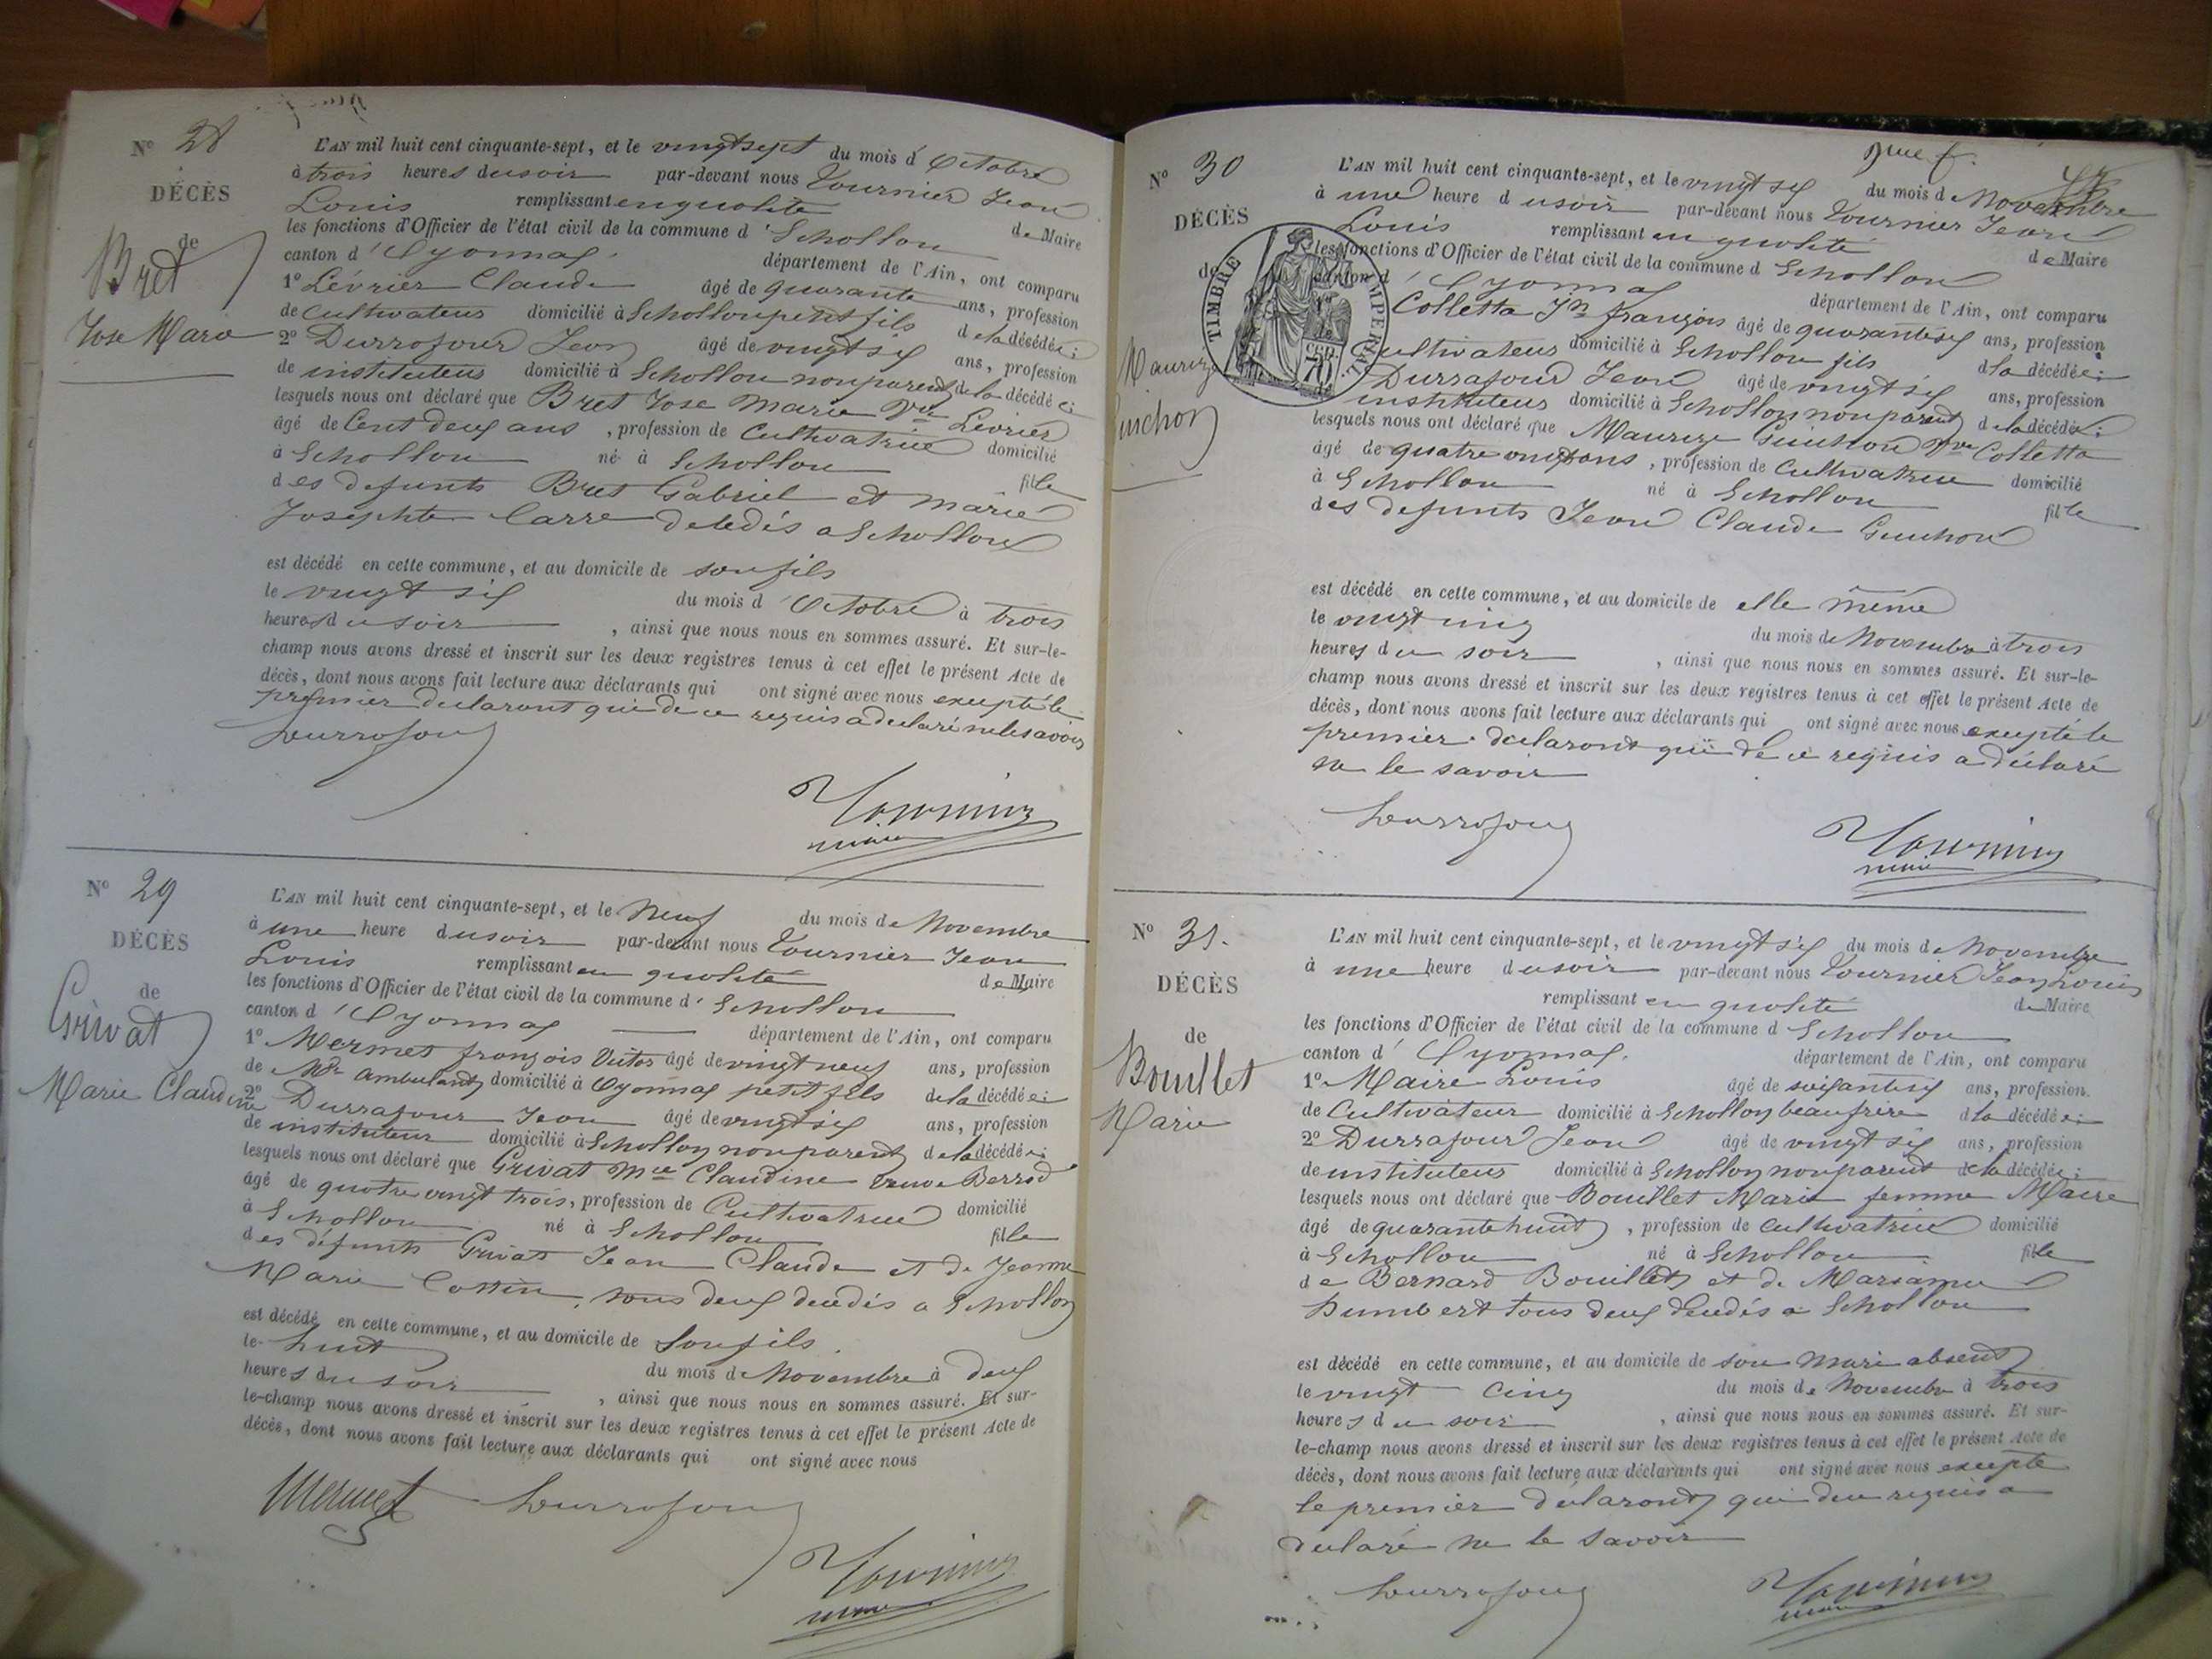 N° 28
DÉCÈS
de
Bret
Jose Marie
L'AN mil huit cent cinquante-sept, et le vingt sept du mois d'Octobre
à trois heures du soir par-devant nous Tournier Jean
Louis remplissant en qualité de Maire
les fonctions d'Officier de l'état civil de la commune d'Echollon
canton d'Oyonnax département de l'Ain, ont comparu
1° Lévrier Claude âgé de quarante ans, profession
de Cultivateur domicilié à Echollon petit fils de la décédée ;
2° Durrafour Jean âgé de vingt six ans, profession
de instituteur domicilié à Echollon non parent de la décédée ;
lesquels nous ont déclaré que Bret Jose Marie Vve Lévrier
âgé de Cent deux ans , profession de Cultivatrice domicilié
à Echollon né à Echollon fille
des defunts Bret Gabriel et Marie
Josephte Carre décédés a Echollon
est décédé en cette commune, et au domicile de son fils
le vingt six du mois d'Octobre à trois
heures du soir , ainsi que nous nous en sommes assuré. Et sur-le-
champ nous avons dressé et inscrit sur les deux registres tenus à cet effet le présent Acte de
décès, dont nous avons fait lecture aux déclarants qui ont signé avec nous excepté le
premier declarant qui de ce requis a declaré ne le savoir
Durrafour
Tournier
maire
N° 29
DÉCÈS
de
Grivat
Marie Claudine
L'AN mil huit cent cinquante-sept, et le Neuf du mois de Novembre
à une heure du soir par-devant nous Tournier Jean
Louis remplissant en qualité de Maire
les fonctions d'Officier de l'état civil de la commune d'Echollon
canton d'Oyonnax département de l'Ain, ont comparu
1° Mermet françois Victor âgé de vingt neuf ans, profession
de Md ambulant domicilié à Oyonnax petit fils de la décédée ;
2° Durrafour Jean âgé de vingt six ans, profession
de instituteur domicilié à Echollon non parent de la décédée ;
lesquels nous ont déclaré que Grivat Mie Claudine veuve Berrod
âgé de quatre vingt trois, profession de Cultivatrice domicilié
à Echollon né à Echollon fille
des défunts Grivat Jean Claude et de Jeanne
Marie tous deux décédés a Echollon
est décédé en cette commune, et au domicile de Son fils.
le huit du mois de Novembre à deux
heures du soir , ainsi que nous nous en sommes assuré. Et sur-
le-champ nous avons dressé et inscrit sur les deux registres tenus à cet effet le présent Acte de
décès, dont nous avons fait lecture aux déclarants qui ont signé avec nous
Mermet Durrafour
Tournier
maire
N° 30
DÉCÈS
de
Maurize
Guichon
TIMBRE IMPERIAL
70
L'AN mil huit cent cinquante-sept, et le vingt six du mois de Novembre
à une heure du soir par-devant nous Tournier Jean
Louis remplissant en qualité de Maire
les fonctions d'Officier de l'état civil de la commune d'Echollon
canton d'Oyonnax département de l'Ain, ont comparu
Colletta Jn françois âgé de quarante six ans, profession
Cultivateur domicilié à Echollon fils de la décédée ;
Durrafour Jean âgé de vingt six ans, profession
instituteur domicilié à Echollon non parent de la décédée ;
lesquels nous ont déclaré que Maurize Guichon Vve Colletta
âgé de quatre vingt ans , profession de Cultivatrice domicilié
à Echollon né à Echollon fille
des defunts Jean Claude Guichon
est décédé en cette commune, et au domicile de elle même
le vingt cinq du mois de Novembre à trois
heures du soir , ainsi que nous nous en sommes assuré. Et sur-le-
champ nous avons dressé et inscrit sur les deux registres tenus à cet effet le présent Acte de
décès, dont nous avons fait lecture aux déclarants qui ont signé avec nous excepté le
premier declarant qui de ce requis a déclaré
ne le savoir
Durrafour
Tournier
maire
N° 31.
DÉCÈS
de
Bouillet
Marie
L'AN mil huit cent cinquante-sept, et le vingt six du mois de Novembre
à une heure du soir par-devant nous Tournier Jean Louis
remplissant en qualité de Maire
les fonctions d'Officier de l'état civil de la commune d'Echollon
canton d'Oyonnax. département de l'Ain, ont comparu
1° Maire Louis âgé de soixante six ans, profession
de Cultivateur domicilié à Echollon beau frère de la décédée ;
2° Durrafour Jean âgé de vingt six ans, profession
de instituteur domicilié à Echollon non parent de la décédée ;
lesquels nous ont déclaré que Bouillet Marie femme Maire
âgé de quarante huit , profession de cultivatrice domicilié
à Echollon né à Echollon fille
de Bernard Bouillet et de Marianne
Humbert tous deux décédés a Echollon
est décédé en cette commune, et au domicile de son mari absent
le vingt cinq du mois de Novembre à trois
heures du soir , ainsi que nous nous en sommes assuré. Et sur-
le-champ nous avons dressé et inscrit sur les deux registres tenus à cet effet le présent Acte de
décès, dont nous avons fait lecture aux déclarants qui ont signé avec nous excepté
le premier déclarant qui de ce requis a
declaré ne le savoir
Durrafour
Tournier
maire